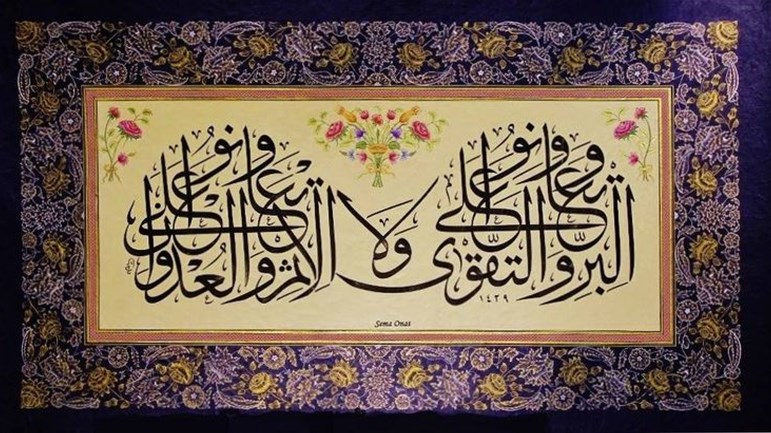 وتعاونوا على البر والتقوى ولا تعاونوا على الاثم والعدوان
١٤٣٩
Sema Onat